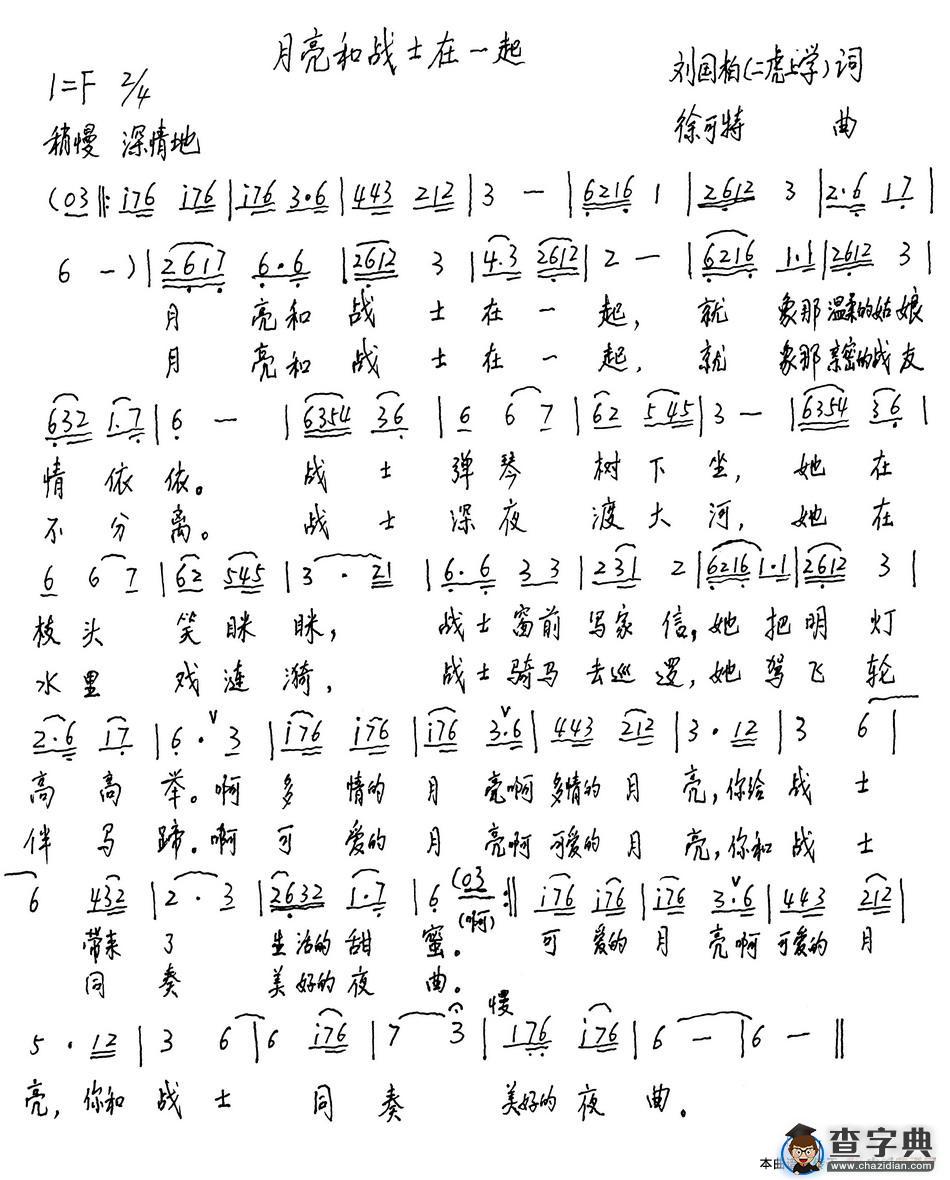 月亮和战士在一起
1=F 2/4
刘国柏(二虎上学)词
稍慢 深情地
徐可特 曲
(03 ‖: i76 i76 | i76 3·6 | 443 212 | 3 — | 6216 1 | 2612 3 | 2·6 17 |
6 —) | 2617 6·6 | 2612 3 | 4·3 2612 | 2 — | 6216 1·1 | 2612 3 |
月 亮和 战 士 在 一 起, 就 象那 温柔的姑娘
月 亮和 战 士 在 一 起, 就 象那 亲密的战友
632 1·7 | 6 — | 6354 36 | 6 6 7 | 62 5 45 | 3 — | 6354 3 6 |
情 依 依。 战 士 弹 琴 树 下 坐, 她 在
不 分 离。 战 士 深 夜 渡 大 河, 她 在
6 6 7 | 62 545 | 3 · 21 | 6·6 3 3 | 231 2 | 6216 1·1 | 2612 3 |
枝 头 笑 眯 眯, 战士 窗前 写家 信, 她 把 明 灯
水 里 戏 涟 漪, 战士 骑马 去巡 逻, 她 驾 飞 轮
2·6 i7 | 6 · ∨ 3 | i76 i76 | i76 3·∨6 | 443 212 | 3 · 12 | 3 6 |
高 高 举。啊 多 情的 月 亮啊 多情的 月 亮, 你给 战 士
伴 马 蹄。啊 可 爱的 月 亮啊 可爱的 月 亮, 你和 战 士
6 432 | 2 · 3 | 2632 1·7 | 6 (03 :‖ i76 i76 | i76 3·∨6 | 443 212 |
(啊)
带来 了 生活的 甜 蜜。 可 爱的 月 亮啊 可爱的 月
同 奏 美好的 夜 曲。
慢
5 · 12 | 3 6 | 6 i76 | 7 3 | 176 i76 | 6 — | 6 — ‖
亮, 你和 战 士 同 奏 美好的 夜 曲。
查字典
www.chazidian.com
本曲